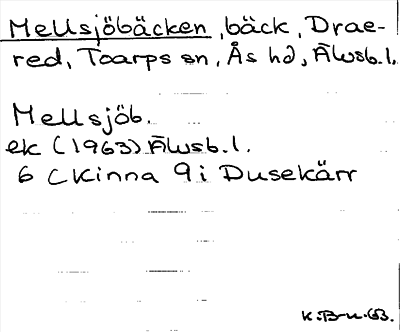 Mellsjöbäcken, bäck, Drae-
red, Toarps sn, Ås hd, Älvsb.l.
Mellsjöb.
ek (1963) Älvsb.l.
6 C Kinna 9 i Dusekärr
K.Bn.63.